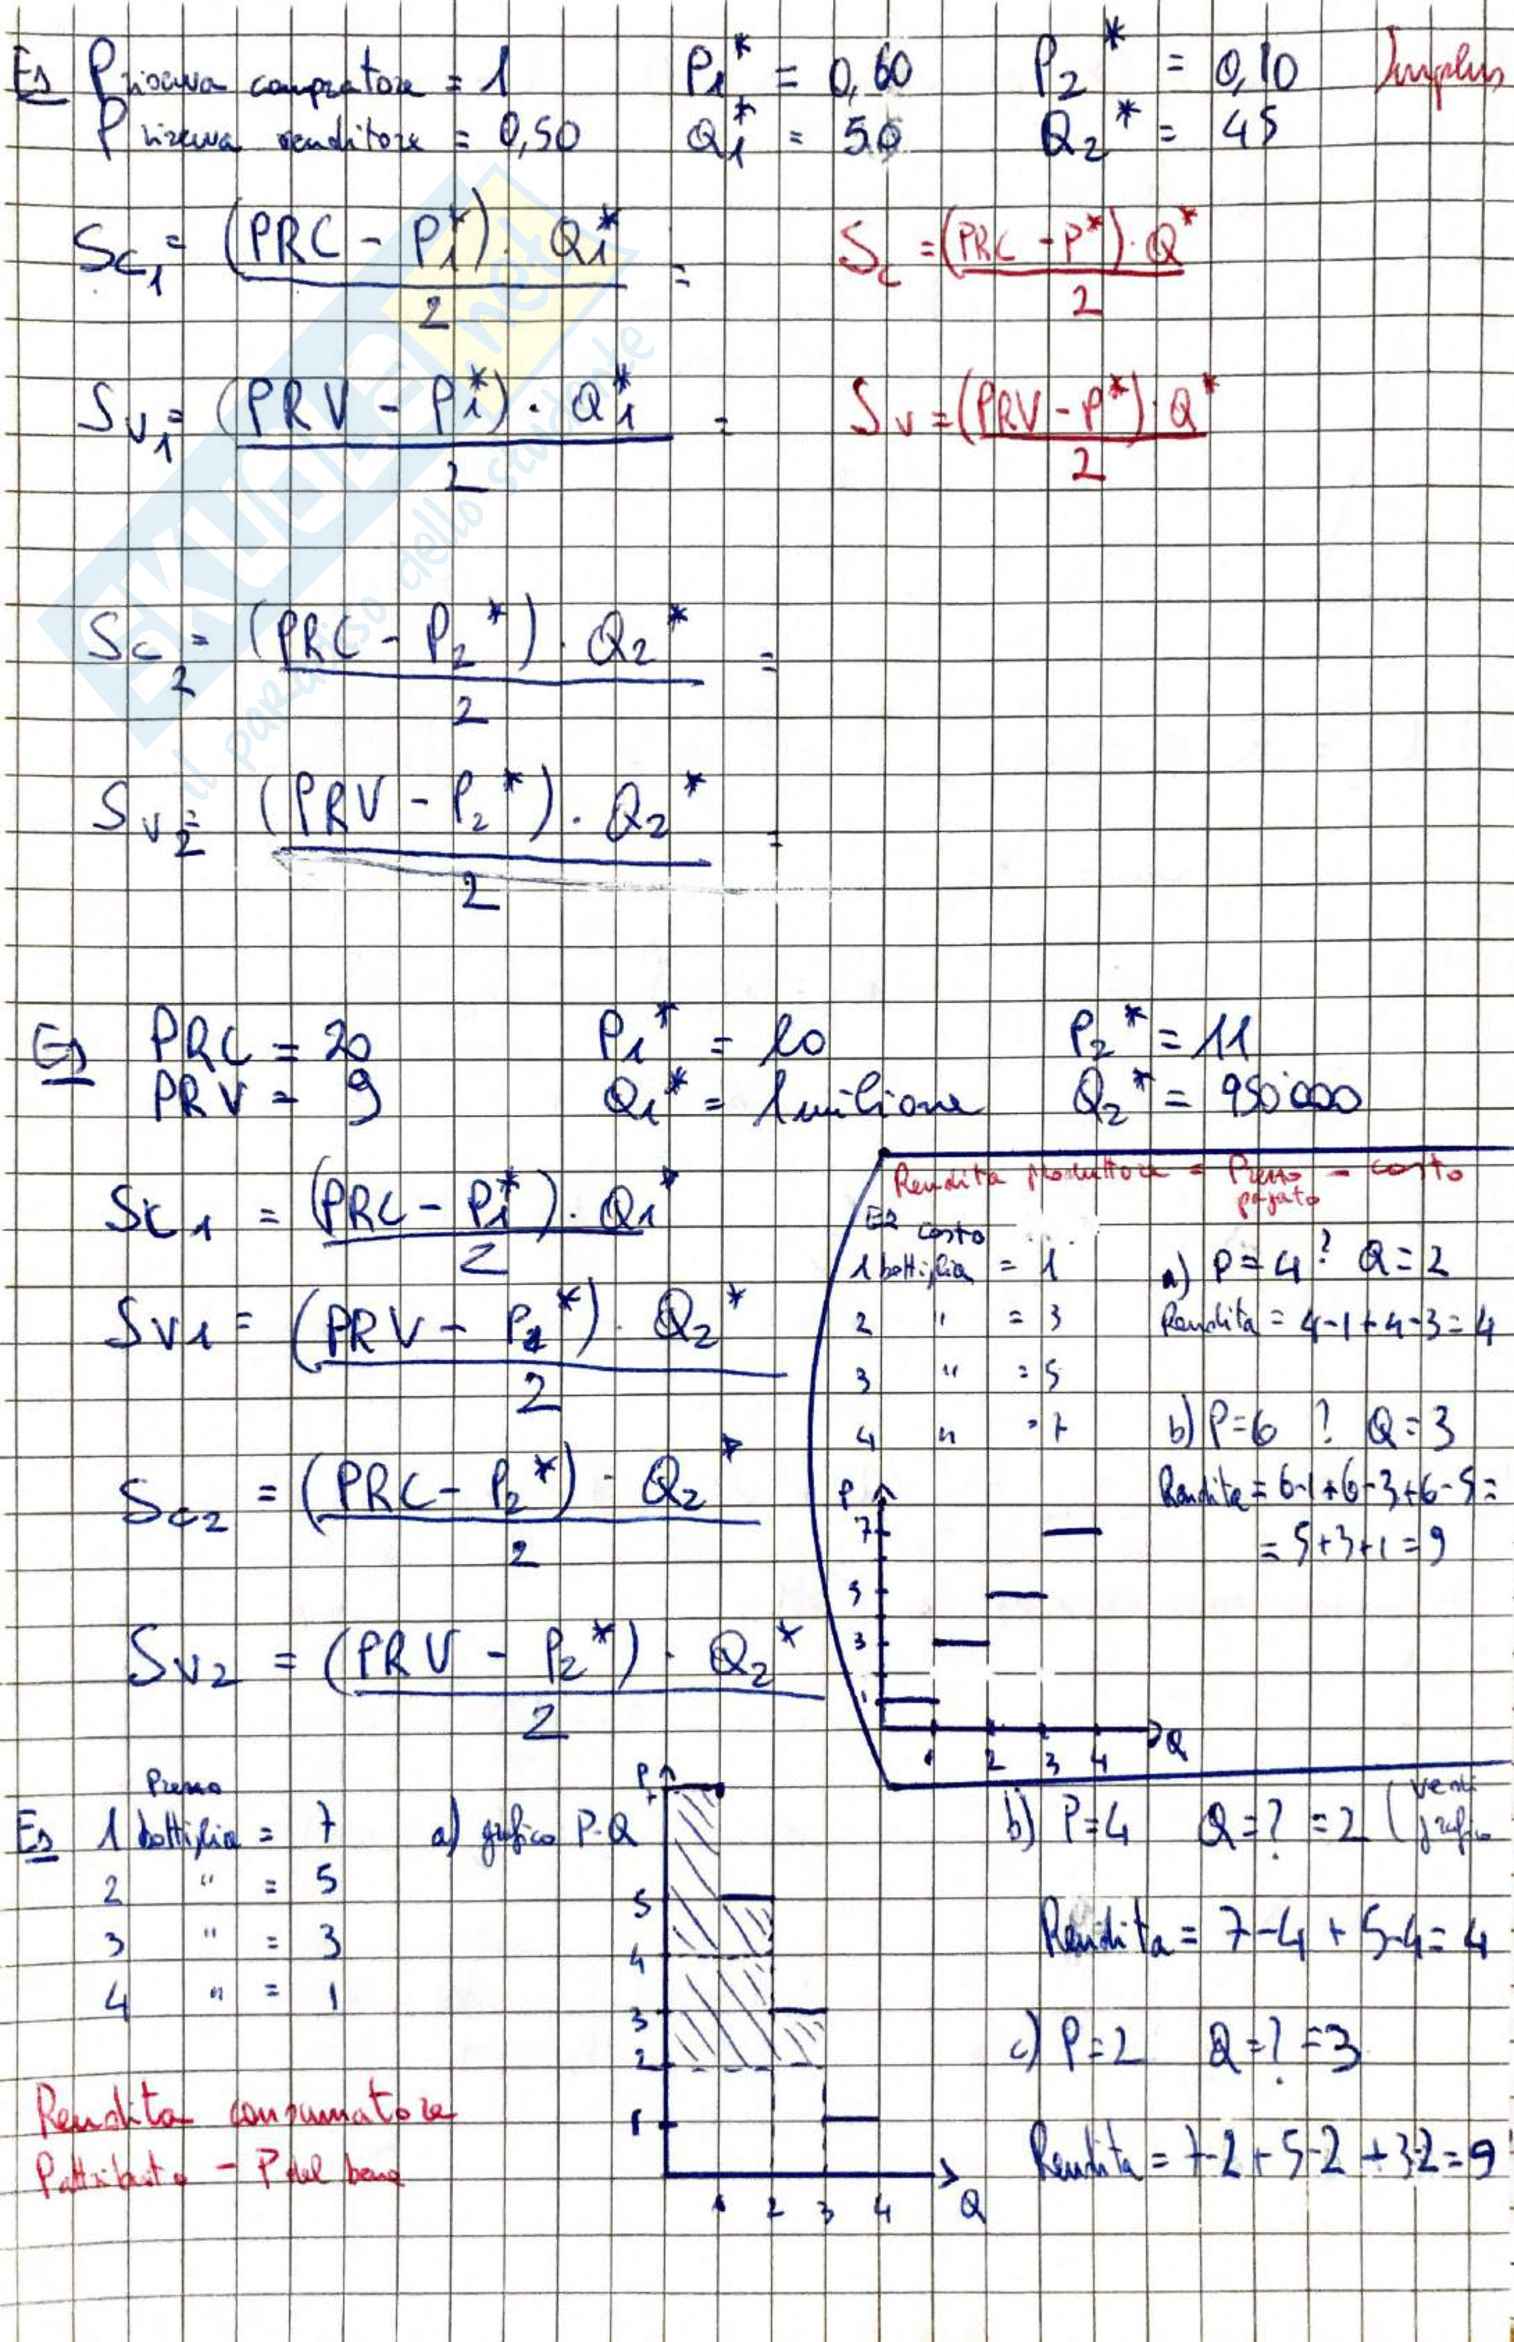 Es P riserva compratore = 1 P1* = 0,60 P2* = 0,10 Surplus
P riserva venditore = 0,50 Q1* = 50 Q2* = 45
Sc1 = (PRC - P1*) · Q1* / 2 =
Sc = (PRC - P*) · Q* / 2
Sv1 = (PRV - P1*) · Q1* / 2 =
Sv = (PRV - P*) · Q* / 2
Sc2 = (PRC - P2*) · Q2* / 2 =
Sv2 = (PRV - P2*) · Q2* / 2 =
SKUOLA.net
il paradiso dello studente
Es PRC = 20 P1* = 10 P2* = 11
PRV = 9 Q1* = 1 milione Q2* = 950'000
Sc1 = (PRC - P1*) · Q1* / 2
Sv1 = (PRV - P1*) · Q2* / 2
Sc2 = (PRC - P2*) · Q2* / 2
Sv2 = (PRV - P2*) · Q2* / 2
Rendita produttore = Prezzo pagato - costo
Es costo
1 bottiglia = 1
2 " = 3
3 " = 5
4 " = 7
a) P = 4 ? Q = 2
Rendita = 4-1+4-3=4
b) P=6 ? Q=3
Rendita = 6-1+6-3+6-5=
= 5+3+1=9
P
7
5
3
1
1 2 3 4 Q
Es Prezzo
1 bottiglia = 7
2 " = 5
3 " = 3
4 " = 1
a) grafico P-Q
P
7
5
4
3
2
1
1 2 3 4 Q
b) P=4 Q=? =2 (vedi grafico
Rendita = 7-4 + 5-4=4
c) P=2 Q=? =3
Rendita = 7-2+5-2+3-2=9
Rendita consumatore
P attribuito - P del bene